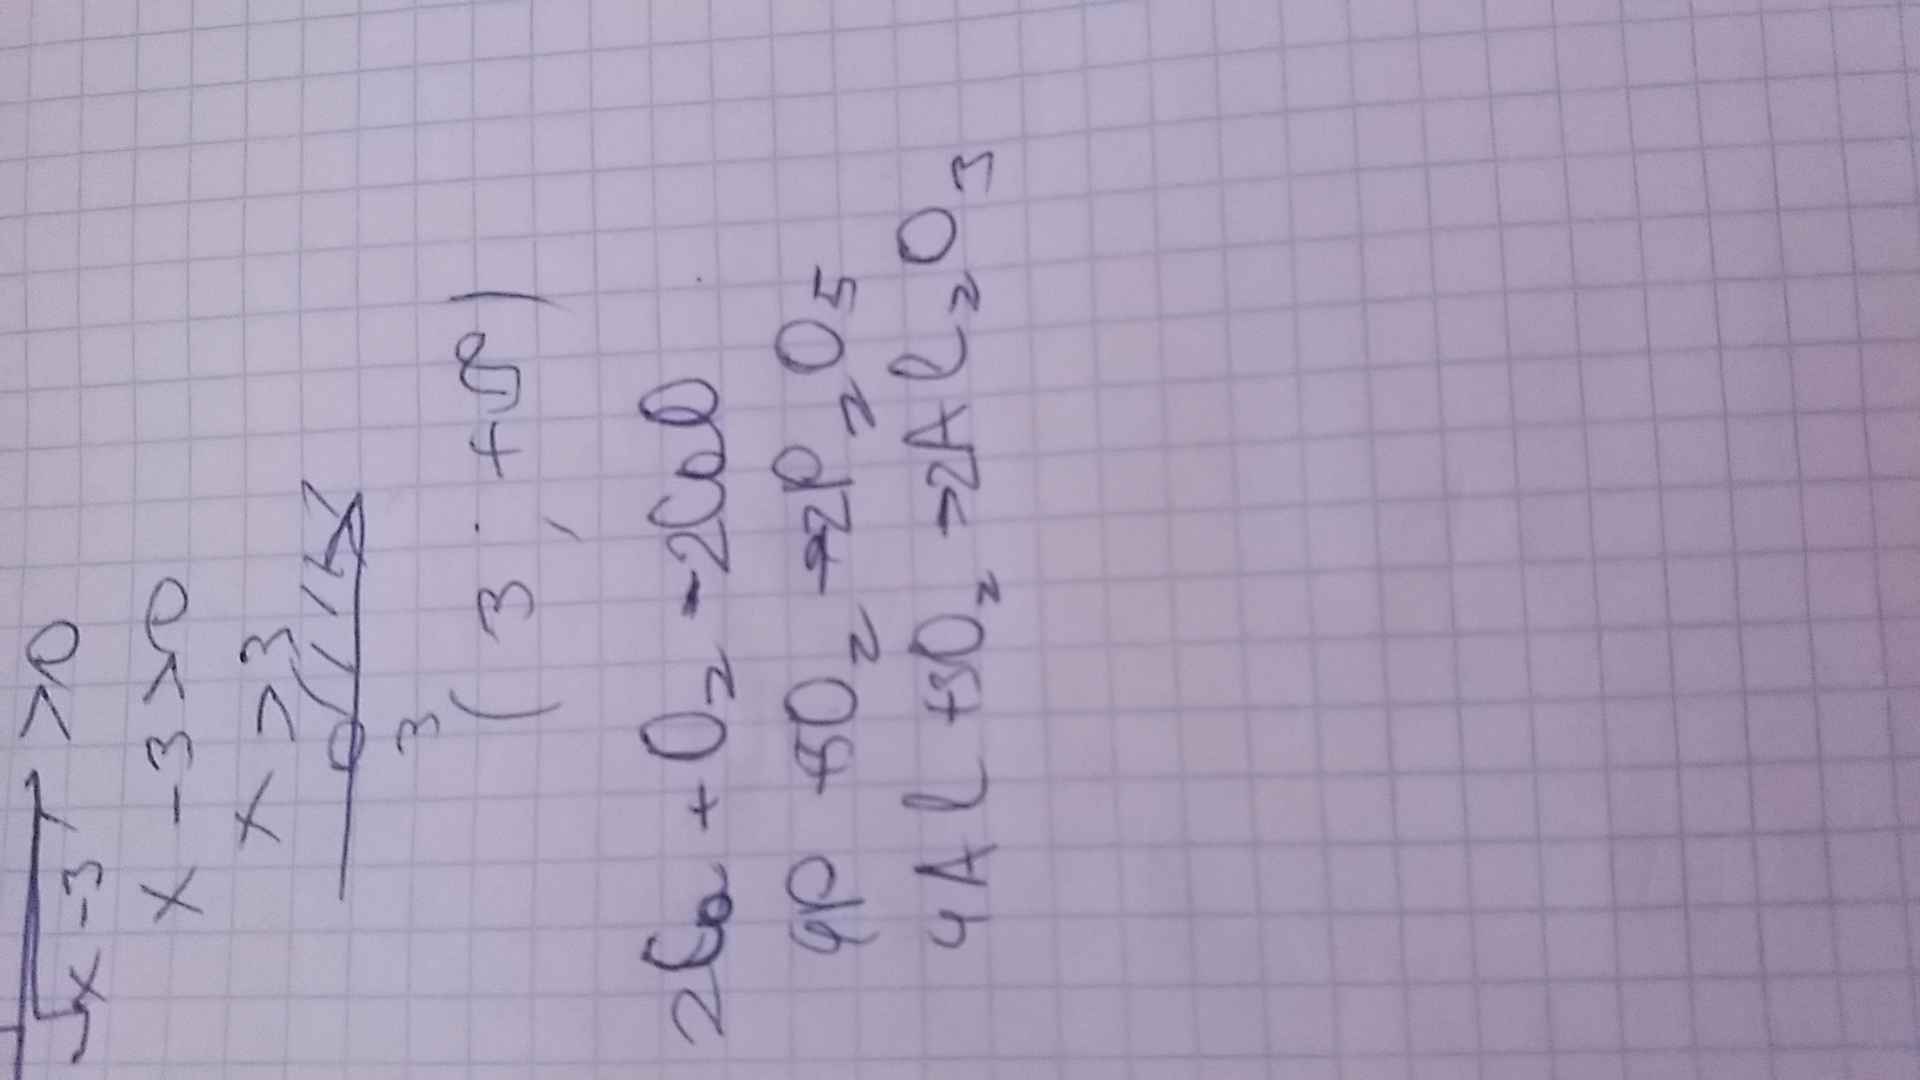 √x-3 >0
x -3 >0
x >3
3
(3; +∞)
2Ca + O₂ - 2CaO
4P +5O₂ → 2P₂O₅
4Al +3O₂ → 2Al₂O₃